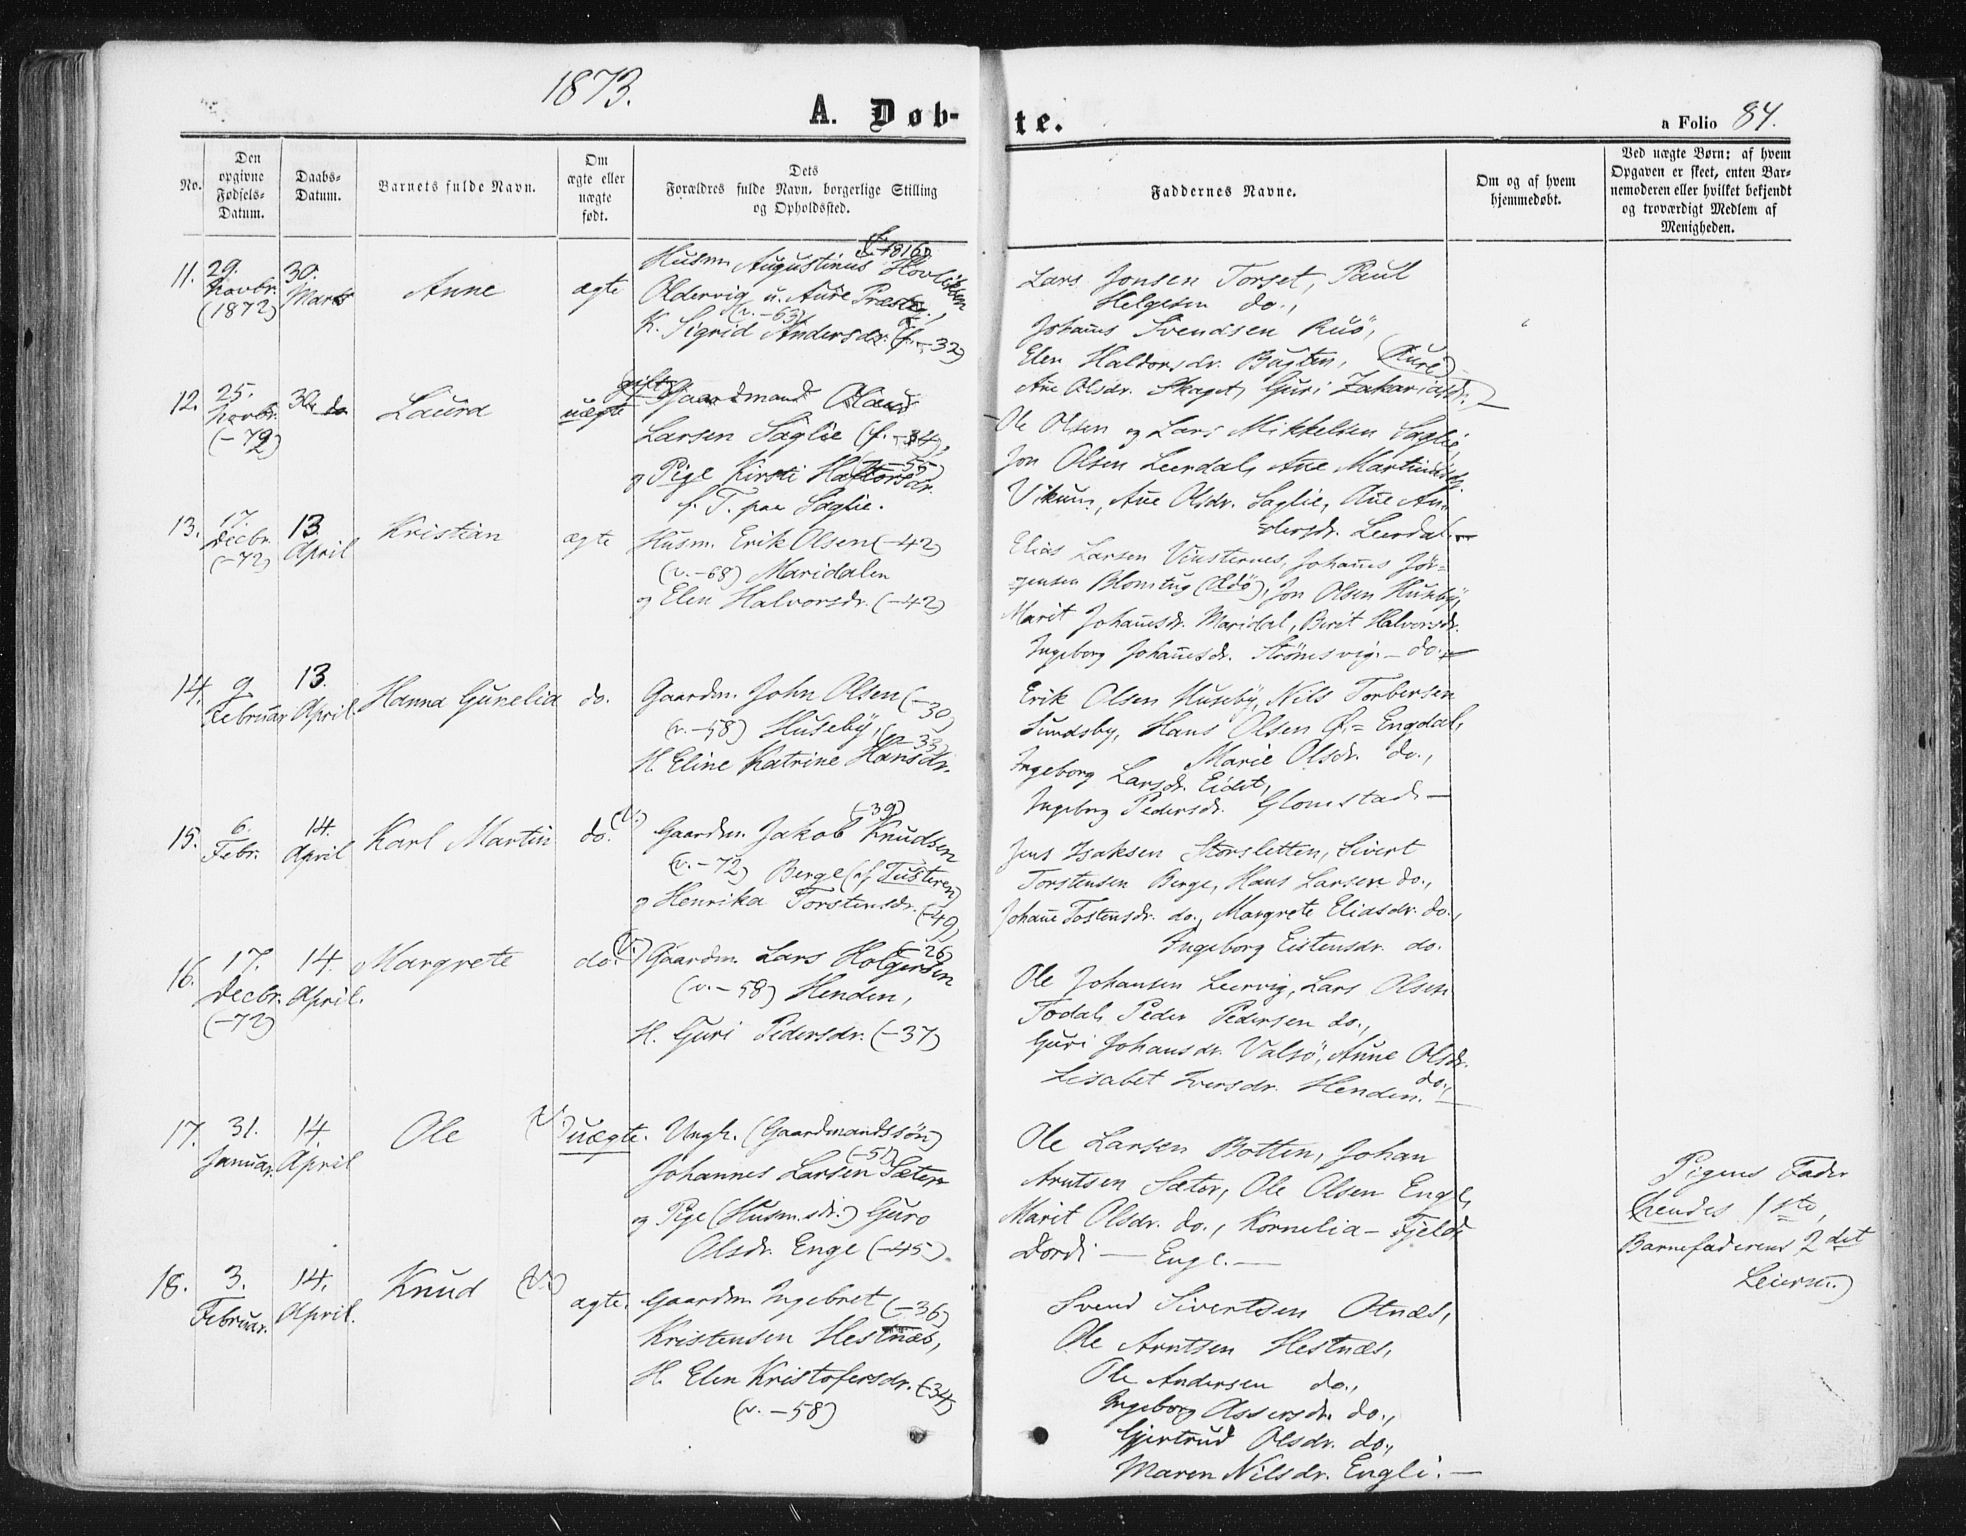 1873.
A. Døb-
te.
a Folio 84.
No.
Den opgivne Fødsels-Datum.
Daabs-Datum.
Barnets fulde Navn.
Om ægte eller uægte født.
Dets Forældres fulde Navn, borgerlige Stilling og Opholdssted.
Faddernes Navne.
Om og af hvem hjemmedøbt.
Ved uægte Børn: af hvem Opgaven er skeet, enten Barnemoderen eller hvilket bekjendt og troværdigt Medlem af Menigheden.
11. 29. Novbr. (1872) 30. Marts Anne ægte
Husm. Augustinus
Oldervig u. Aure Præsteg.,
(v. -63)
K. Sigrid Andersdr. (f. -32)
Lars Jonsen Torset, Paul
Helgesen do.,
Johannes Svendsen Ruø,
Elen Haldorsdr. Bugten, (Aure)
Ane Olsdr. Skaget, Guri Zakariasdr. —
12. 25. Novbr. (-72) 30. do. Laura uægte
gift Gaardmand
Larsen Saglie (f. -34),
(-55)
og Pige Kirsti Haftorsdr.
f. T. paa Saglie.
Ole Olsen og Lars Mikkelsen Saglie,
Jon Olsen Leerdal, Ane Martinusdr.
Vikum, Ane Olsdr. Saglie, Ane An-
dersdr. Leerdal. —
13. 17. Decbr. (-72) 13. April Kristian ægte
Husm. Erik Olsen (-42)
(v. -68) Maridalen
og Elen Halvorsdr. (-42)
Elias Larsen Vinsternes, Johannes Jør-
gensen Blomtug (Edø), Jon Olsen Husby,
Marit Johannesdr. Maridal, Berit Halvorsdr.
Ingeborg Johannesdr. Strømsvig. — do. —
14. 9. Februar 13. April. Hanna Gunelia do.
Gaardm. John Olsen (-30)
(v. -58) Huseby,
(-33)
H. Eline Katrine Hansdr.
Erik Olsen Husby, Nils Torbersen
Sundsby, Hans Olsen Ø.= Engdal,
Marie Olsdr. do.,
Ingeborg Larsdr. Eidet,
Ingeborg Pedersdr. Glomstad. —
15. 6. Febr. 14. April Karl Martin do. (V.)
(-39)
Gaardm. Jakob Knudsen
(v. -72) Berge (af Tusteren)
og Henrika Torstensdr. (-49)
Jens Isaksen Storsletten, Sivert
Torstensen Berge, Hans Larsen do.,
Johanne Tostensdr. do., Margrete Eliasdr. do.,
Ingeborg Eistensdr. do.
16. 17. Decbr. (-72) 14. April. Margrete do. (V.)
(-26)
Gaardm. Lars Holgersen
(v. -58) Henden,
H. Guri Pedersdr. (-37)
Ole Johansen Leervig, Lars Olsen
Todal, Peder Pedersen do.,
Guri Johansdr. Valsø, Anne Olsdr.
do.,
Lisabet Iversdr. Henden. —
17. 31. Januar. 14. April Ole (V.) uægte.
Ungk. (Gaardmandssøn)
(-51)
Johannes Larsen Sæter
og Pige (Husm.sdr.) Guro
Olsdr. Enge (-45).
Ole Larsen Botten, Johan
Arntsen Sæter, Ole Olsen Enge,
Marit Olsdr. do., Kornelia — Fjelde
Dordi — Enge. —
Pigens Fader
(hendes 1ste,
Barnefaderens 2det
Leierm.)
18. 3. Februar. 14. April. Knud (V.) ægte.
Gaardm. Ingebret (-36)
Kristensen Hestnæs,
H. Elen Kristofersdr. (-34)
(v. -58)
Svend Sivertsen Otnæs,
Ole Arntsen Hestnæs,
Ole Andersen do.,
Ingeborg Assersdr. do.,
Gjertrud Olsdr. do.,
Maren Nilsdr. Engli. —